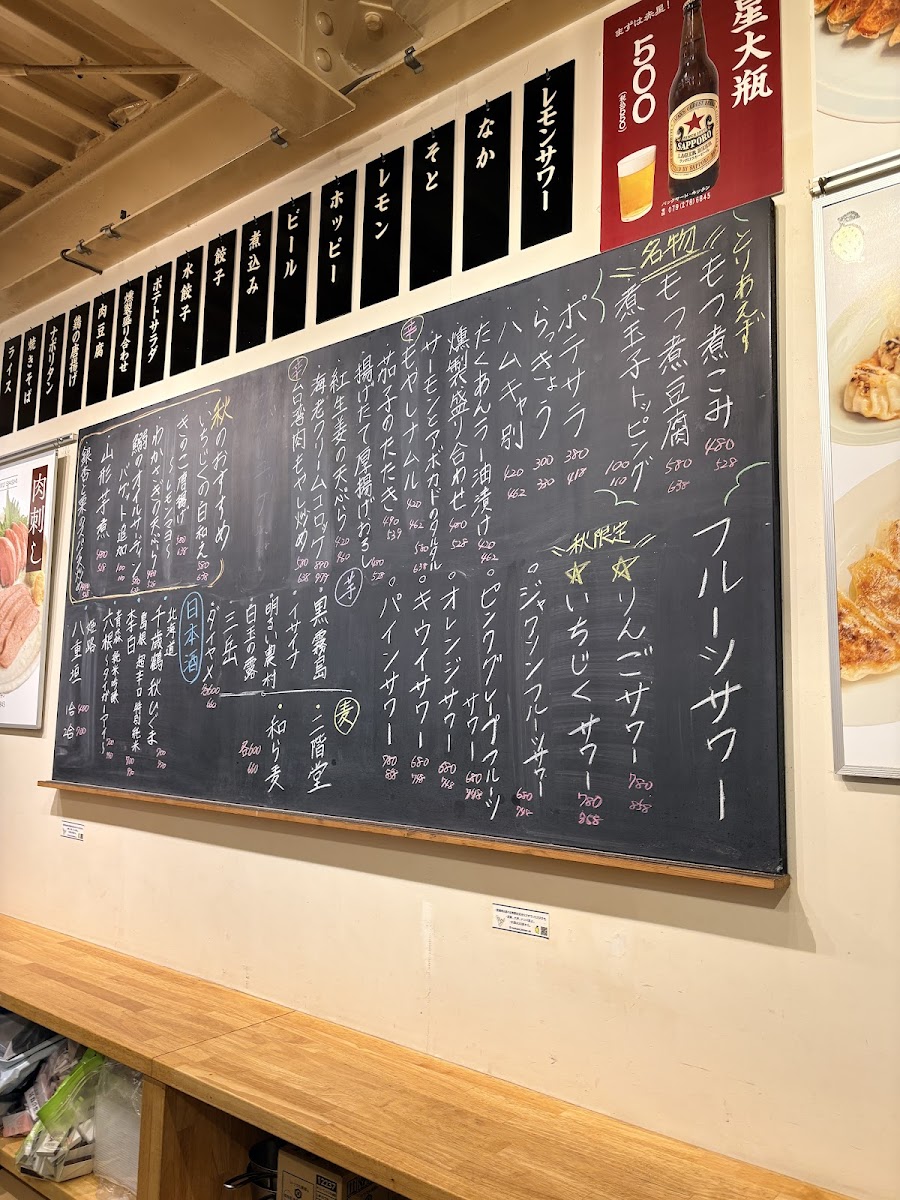 星大瓶
まずは赤星!
500
(税込550)
SAPPORO
LAGER BEER
☎079(278)6845
レモンサワー
なか
そと
レモン
ホッピー
ビール
煮込み
餃子
水餃子
ポテトサラダ
燻製盛り合わせ
肉豆腐
鶏の唐揚げ
ナポリタン
焼きそば
ライス
とりあえず
名物
モつ煮こみ 480 528
モつ煮豆腐 580 638
煮玉子トッピング 100 110
・ポテサラ 380 418
・らっきょう 300 330
・ハムキャ別 420 462
・たくあんラー油漬け 420 462
・燻製盛り合わせ 480 528
・サーモンとアボカドのタルタル 580 638
辛 モヤシナムル 420 462
・茄子のたたき 490 539
・揚げたて厚揚げおろし 480 528
・紅生姜の天ぷら 420 460
・海老クリームコロッケ 890 979
辛 台湾肉もやし炒め 580 638
秋のおすすめ
いちじくの白和え 580 638
きのこ唐揚げ
〜レモンマヨ〜 580 638
わかさぎの天ぷら 480 528
鰯のオイルサーディン
バゲット追加 100 110
山形芋煮
フルーツサワー
秋限定
☆りんごサワー 780 858
☆いちじくサワー 780 868
・ジャワリンフルーツサワー 680 748
・ピンクグレープフルーツ
サワー 680 748
・オレンジサワー 680 748
・キウイサワー 680 748
・パインサワー 780 858
芋
・黒霧島
・イサイナ
・明るい農村
・白玉の露
・三岳
・ダイヤメ
各600 660
麦
・二階堂
・和ら麦
各600 660
日本酒
北海道
・千歳鶴 秋ひぐま 700 770
島根 超辛口 特別純米
・李白 700 770
青森 純米吟醸
・六根〜タイガーアイ〜 700 770
姫路
・八重垣
肉刺し